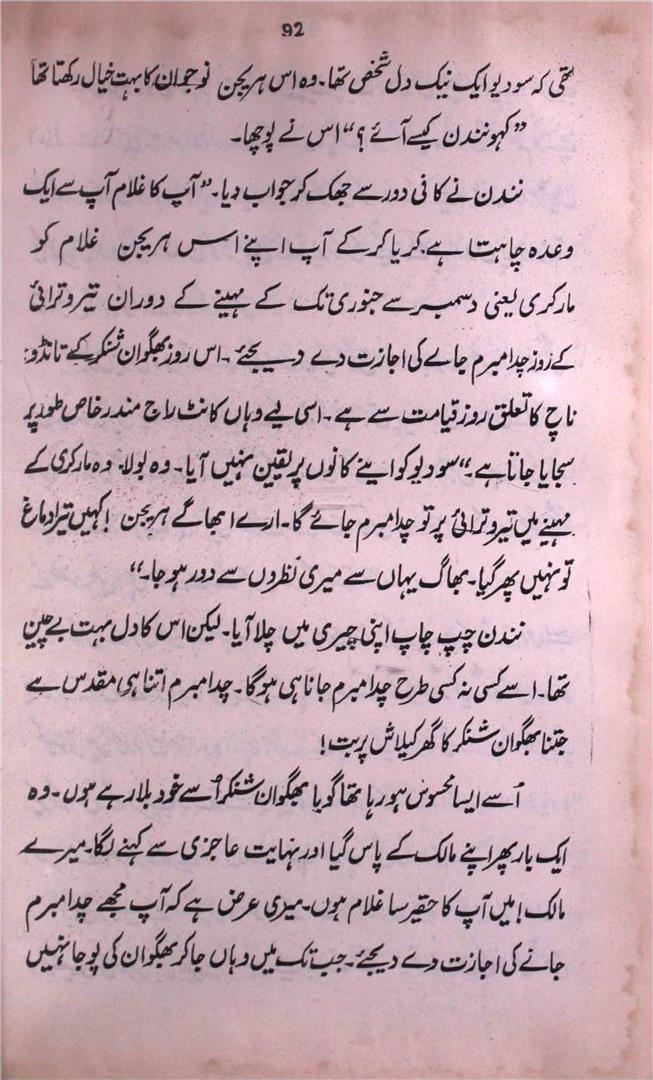 92
تھی کہ سودیو ایک نیک دل شخص تھا۔ وہ اس ہریجن نوجوان کا بہت خیال رکھتا تھا
”کہو نندن کیسے آئے؟“ اس نے پوچھا۔
نندن نے کافی دور سے جھک کر جواب دیا۔ ”آپ کا غلام آپ سے ایک
وعدہ چاہتا ہے۔ کرپا کرکے آپ اپنے اس ہریجن غلام کو
مارکری یعنی دسمبر سے جنوری تک کے مہینے کے دوران تیروترائی
کے روز چدامبرم جانے کی اجازت دے دیجئے۔ اس روز بھگوان شنکر کے تانڈو
ناچ کا تعلق روز قیامت سے ہے۔ اسی لیے وہاں کا نٹ راج مندر خاص طور پر
سجایا جاتا ہے۔“ سودیو کو اپنے کانوں پر یقین نہیں آیا۔ وہ بولا: وہ مارکری کے
مہینے میں تیروترائی پر تو چدامبرم جائے گا۔ ارے ابھاگے ہریجن! کہیں تیرا دماغ
تو نہیں پھر گیا۔ بھاگ یہاں سے میری نظروں سے دور ہو جا۔“
نندن چپ چاپ اپنی چیری میں چلا آیا۔ لیکن اس کا دل بہت بے چین
تھا۔ اسے کسی نہ کسی طرح چدامبرم جانا ہی ہوگا۔ چدامبرم اتنا ہی مقدس ہے
جتنا بھگوان شنکر کا گھر کیلاش پربت!
اُسے ایسا محسوس ہو رہا تھا گویا بھگوان شنکر اُسے خود بلا رہے ہوں۔ وہ
ایک بار پھر اپنے مالک کے پاس گیا اور نہایت عاجزی سے کہنے لگا۔ میرے
مالک! میں آپ کا حقیر سا غلام ہوں۔ میری عرض ہے کہ آپ مجھے چدامبرم
جانے کی اجازت دے دیجئے۔ جب تک میں وہاں جاکر بھگوان کی پوجا نہیں